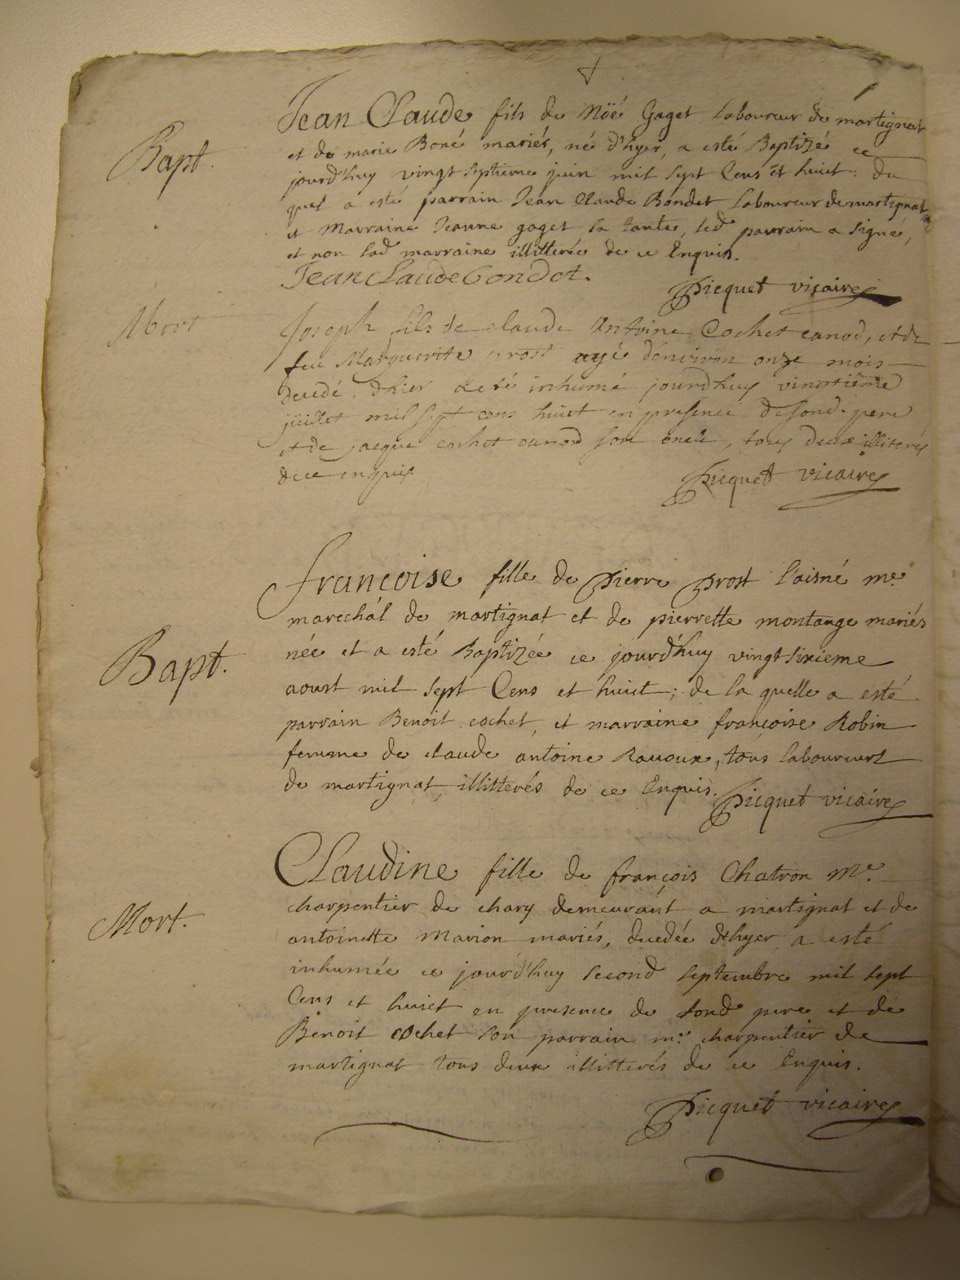 Bapt.
Jean Claude fils de Noé Gaget laboureur de martignat
et de marie Boné mariés, né d'hyer, a esté Baptizé ce
jourd'huy vingt septieme juin mil sept Cens et huict: du
quel a esté parrain Jean Claude Bondet laboureur de martignat
et Marraine Jeanne gaget sa tante, led parrain a signé,
et non lad marraine illitterée de ce Enquis.
Jean Claude Bondot.
Picquet vicaire
Mort
Joseph fils de claude Antoine Cochet canod, et de
feu Marguerite prost agé d'environ onze mois
decedé d'hier a été inhumé jourd'huy vingtième
juillet mil sept cens huict en presence de sond. pere
et de jacque cochet canod son oncle, tous deux illiterés
de ce enquis
Picquet vicaire
Bapt.
françoise fille de Pierre prost l'aisné me.
marechál de martignat et de pierrette montange mariés
née et a esté Baptizée ce jourd'huy vingt sixieme
aoust mil sept Cens et huict; de la quelle a esté
parrain Benoit cochet, et marraine françoise Robin
femme de claude antoine Ravoux, tous laboureurs
de martignat, illitterés de ce Enquis.
Picquet vicaire
Mort.
Claudine fille de françois Chatron Me.
charpentier de chary demeurant a martignat et de
antoinette Marion mariés, decedée d'hyer a esté
inhumée ce jourd'huy second septembre mil sept
Cens et huict en presence de sond pere et de
Benoit cochet son parrain me. charpentier de
martignat tous deux illitterés de ce Enquis.
Picquet vicaire